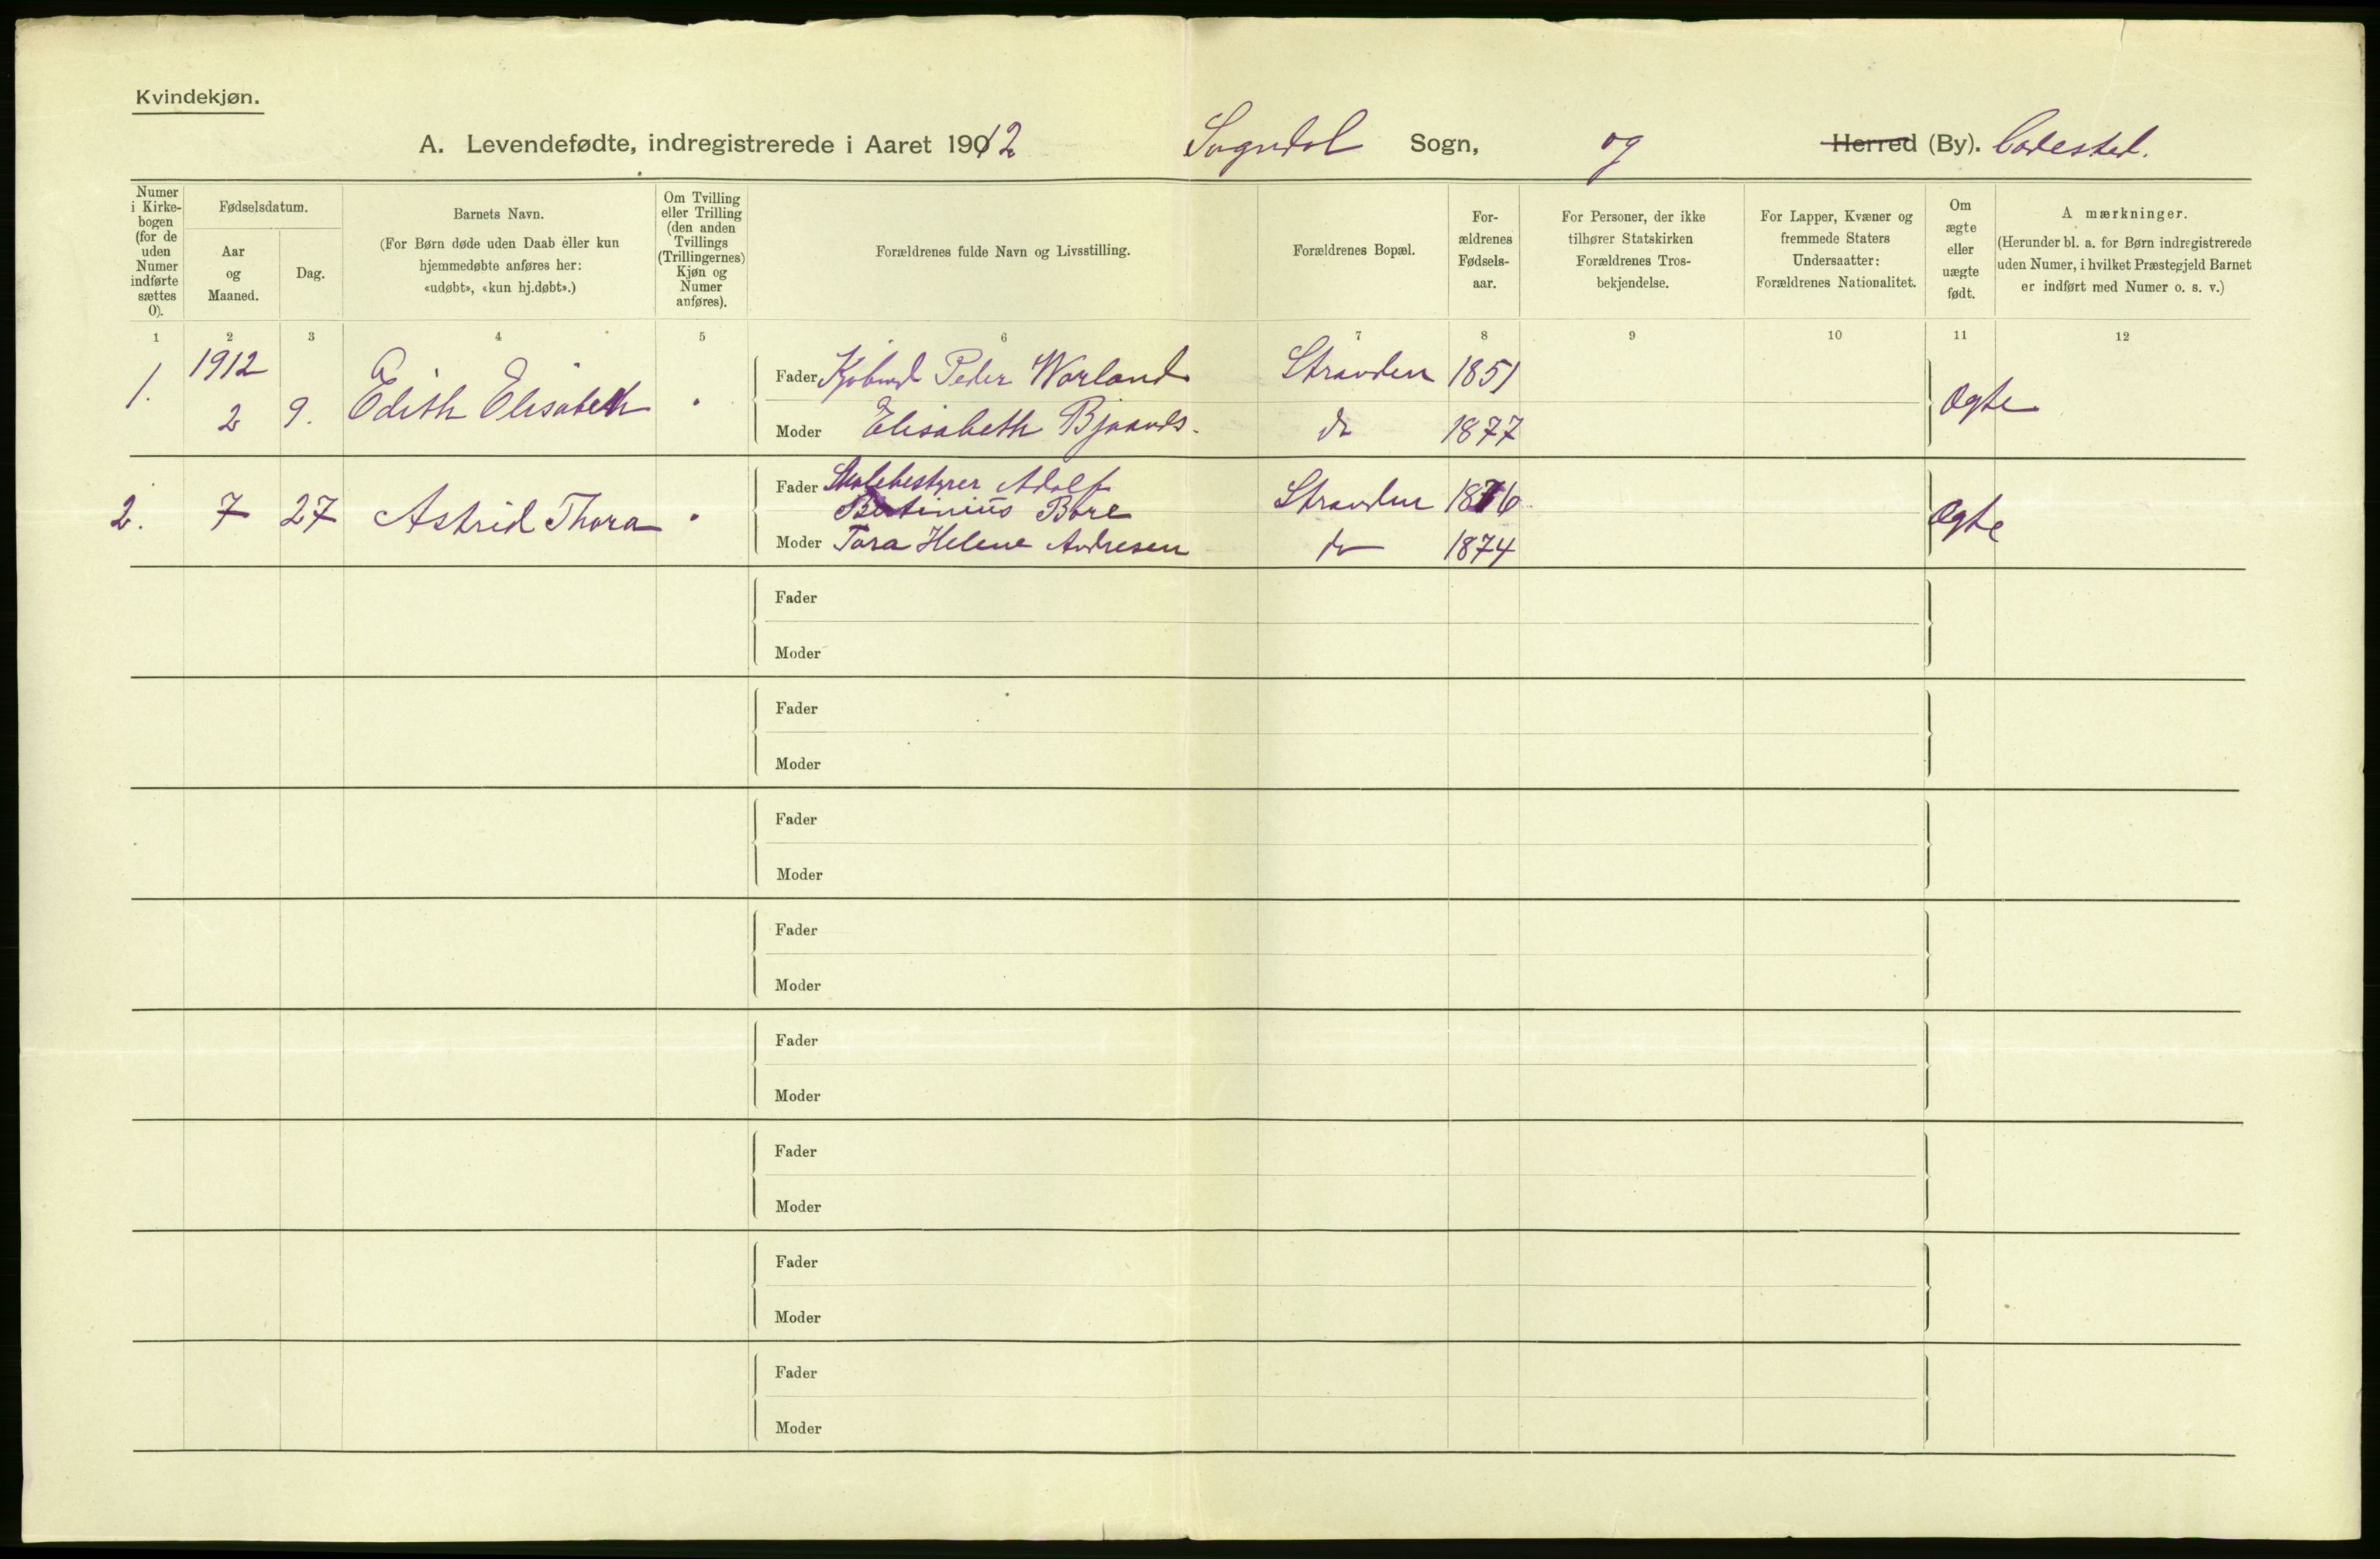 Kvindekjøn.
A. Levendefødte, indregistrerede i Aaret 1912 Sogndal Sogn, og Herred (By). Ladested.
Numer i Kirke-bogen (for de uden Numer indførte sættes 0).
Fødselsdatum.
Aar og Maaned.
Dag.
Barnets Navn.
(For Børn døde uden Daab eller kun
hjemmedøbte anføres her:
«udøbt», «kun hj.døbt».)
Om Tvilling
eller Trilling
(den anden
Tvillings
(Trillingernes)
Kjøn og
Numer
anføres).
Forældrenes fulde Navn og Livsstilling.
Forældrenes Bopæl.
For-
ældrenes
Fødsels-
aar.
For Personer, der ikke
tilhører Statskirken
Forældrenes Tros-
bekjendelse.
For Lapper, Kvæner og
fremmede Staters
Undersaatter:
Forældrenes Nationalitet.
Om
ægte
eller
uægte
født.
A mærkninger.
(Herunder bl. a. for Børn indregistrerede
uden Numer, i hvilket Præstegjeld Barnet
er indført med Numer o. s. v.)
1 2 3 4 5 6 7 8 9 10 11 12
1. 1912 2 9. Edith Elisabeth Fader Kjøbmd Peder Warland Stranden 1851 Ægte
Moder Elisabeth Bjaands. do 1877
2. 7 27 Astrid Thora Fader Skolebestyrer Adolf
Bertinius Bore Stranden 1876 Ægte
Moder Tora Helene Andresen do 1874
Fader
Moder
Fader
Moder
Fader
Moder
Fader
Moder
Fader
Moder
Fader
Moder
Fader
Moder
Fader
Moder